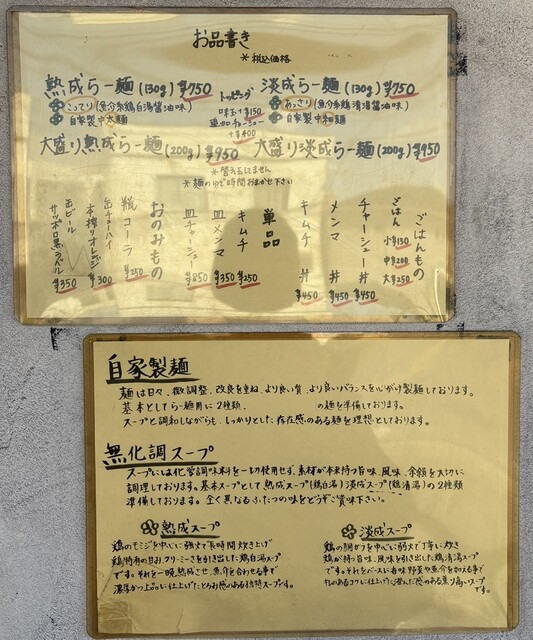 お品書き
※税込価格
熟成らー麺(130g) ¥750
こってり(魚介系鶏白湯醤油味)
自家製中太麺
トッピング
味玉 +¥150
追加チャーシュー
+¥400
淡成らー麺(130g) ¥750
あっさり(魚介系鶏清湯醤油味)
自家製中細麺
大盛り熟成らー麺(200g) ¥950
大盛り淡成らー麺(200g) ¥950
※替え玉はありません
※麺のゆで時間おまかせ下さい
ごはんもの
ごはん 小¥150
中¥200
大¥250
チャーシュー丼 ¥450
メンマ丼 ¥450
キムチ丼 ¥450
単品
キムチ ¥250
皿メンマ ¥350
皿チャーシュー ¥850
おのみもの
瓶コーラ ¥250
缶チューハイ
本搾りオレンジ ¥300
缶ビール
サッポロ黒ラベル ¥350
自家製麺
麺は日々、微調整、改良を重ね、より良い質、より良いバランスを心がけ製麺しております。
基本としてらー麺用に2種類、の麺を準備しております。
スープと調和しながらも、しっかりとした存在感のある麺を理想としております。
無化調スープ
スープには化学調味料を一切使用せず、素材が本来持つ旨味、風味、余韻を大切に
調理しております。基本スープとして熟成スープ(鶏白湯)淡成スープ(鶏清湯)の2種類
準備しております。全く異なるふたつの味をどうぞご賞味下さい。
熟成スープ
鶏のモミジを中心に強火で長時間炊き上げ
鶏特有の甘み、クリーミーさを引き出した鶏白湯スープ
です。それを一晩熟成させ、魚介を合わせる事で
濃厚かつ上品に仕上げたとろみ感のある独特スープです。
淡成スープ
鶏の胴がらを中心に弱火で丁寧に炊き
鶏が持つ旨味、風味を引き出した鶏清湯スープ
です。それをベースに香味野菜や魚介を加える事で
キレのあるコクに仕上げた澄んだ感のある薫り高いスープ
です。